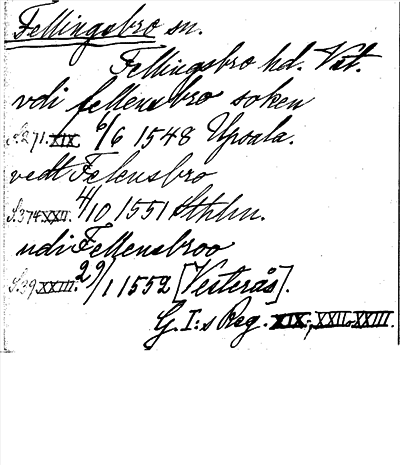 Fellingsbro sn.
Fellingsbro hd. Vst.
vdi fellensbro soken
S.271. XIX. 6/6 1548 Upsala.
vedt Felensbro
S.374 XXII. 4/10 1551 Sthlm.
udi Fellensbroo
S.39 XXIII. 29/1 1552 [Vesterås].
G. I:s Reg. XIX; XXII-XXIII.